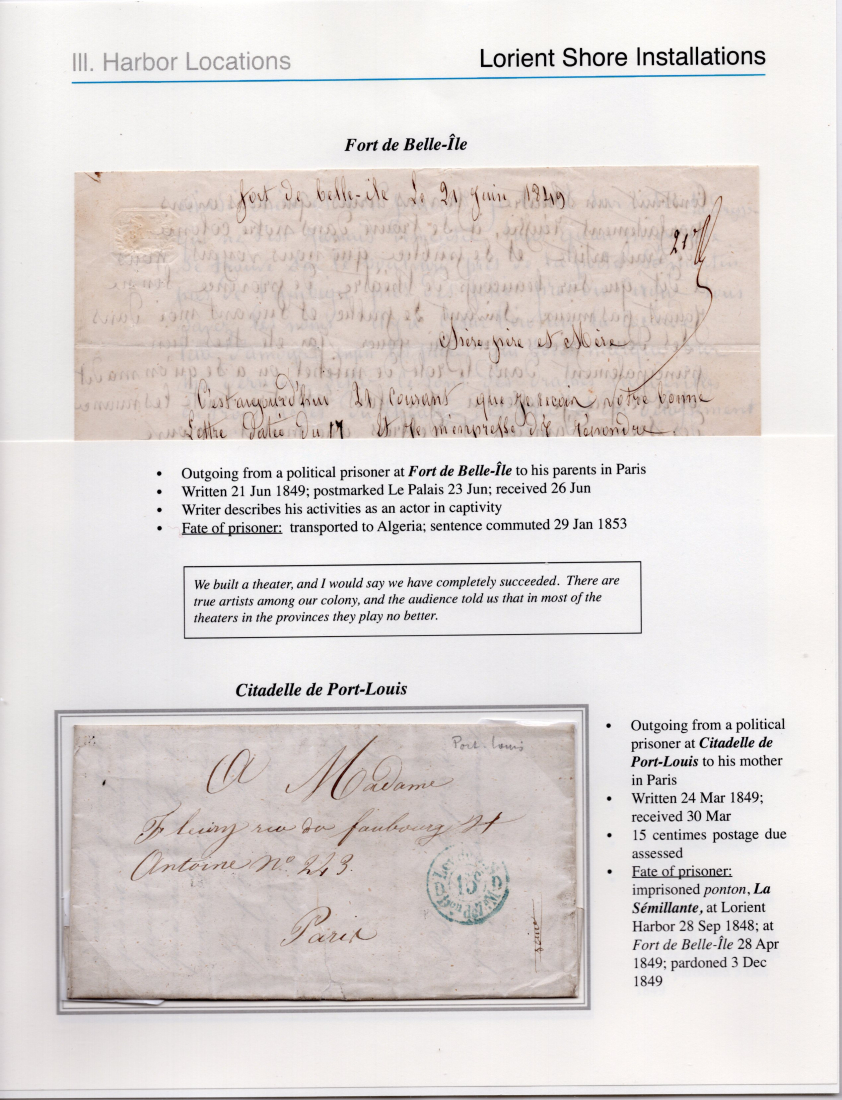 III. Harbor Locations
Lorient Shore Installations
Fort de Belle-Île
fort de belle-ile Le 21 Juin 1849
21
Chère père et Mère
C'est aujourd'hui 21 courant que je reçois votre bonne
Lettre datée du 17 et je m'empresse d'y répondre
• Outgoing from a political prisoner at Fort de Belle-Île to his parents in Paris
• Written 21 Jun 1849; postmarked Le Palais 23 Jun; received 26 Jun
• Writer describes his activities as an actor in captivity
• Fate of prisoner: transported to Algeria; sentence commuted 29 Jan 1853
We built a theater, and I would say we have completely succeeded. There are
true artists among our colony, and the audience told us that in most of the
theaters in the provinces they play no better.
Citadelle de Port-Louis
Port-Louis
A Madame
Fleury rue du faubourg St
Antoine N° 243.
Paris
15
• Outgoing from a political
prisoner at Citadelle de
Port-Louis to his mother
in Paris
• Written 24 Mar 1849;
received 30 Mar
• 15 centimes postage due
assessed
• Fate of prisoner:
imprisoned ponton, La
Sémillante, at Lorient
Harbor 28 Sep 1848; at
Fort de Belle-Île 28 Apr
1849; pardoned 3 Dec
1849